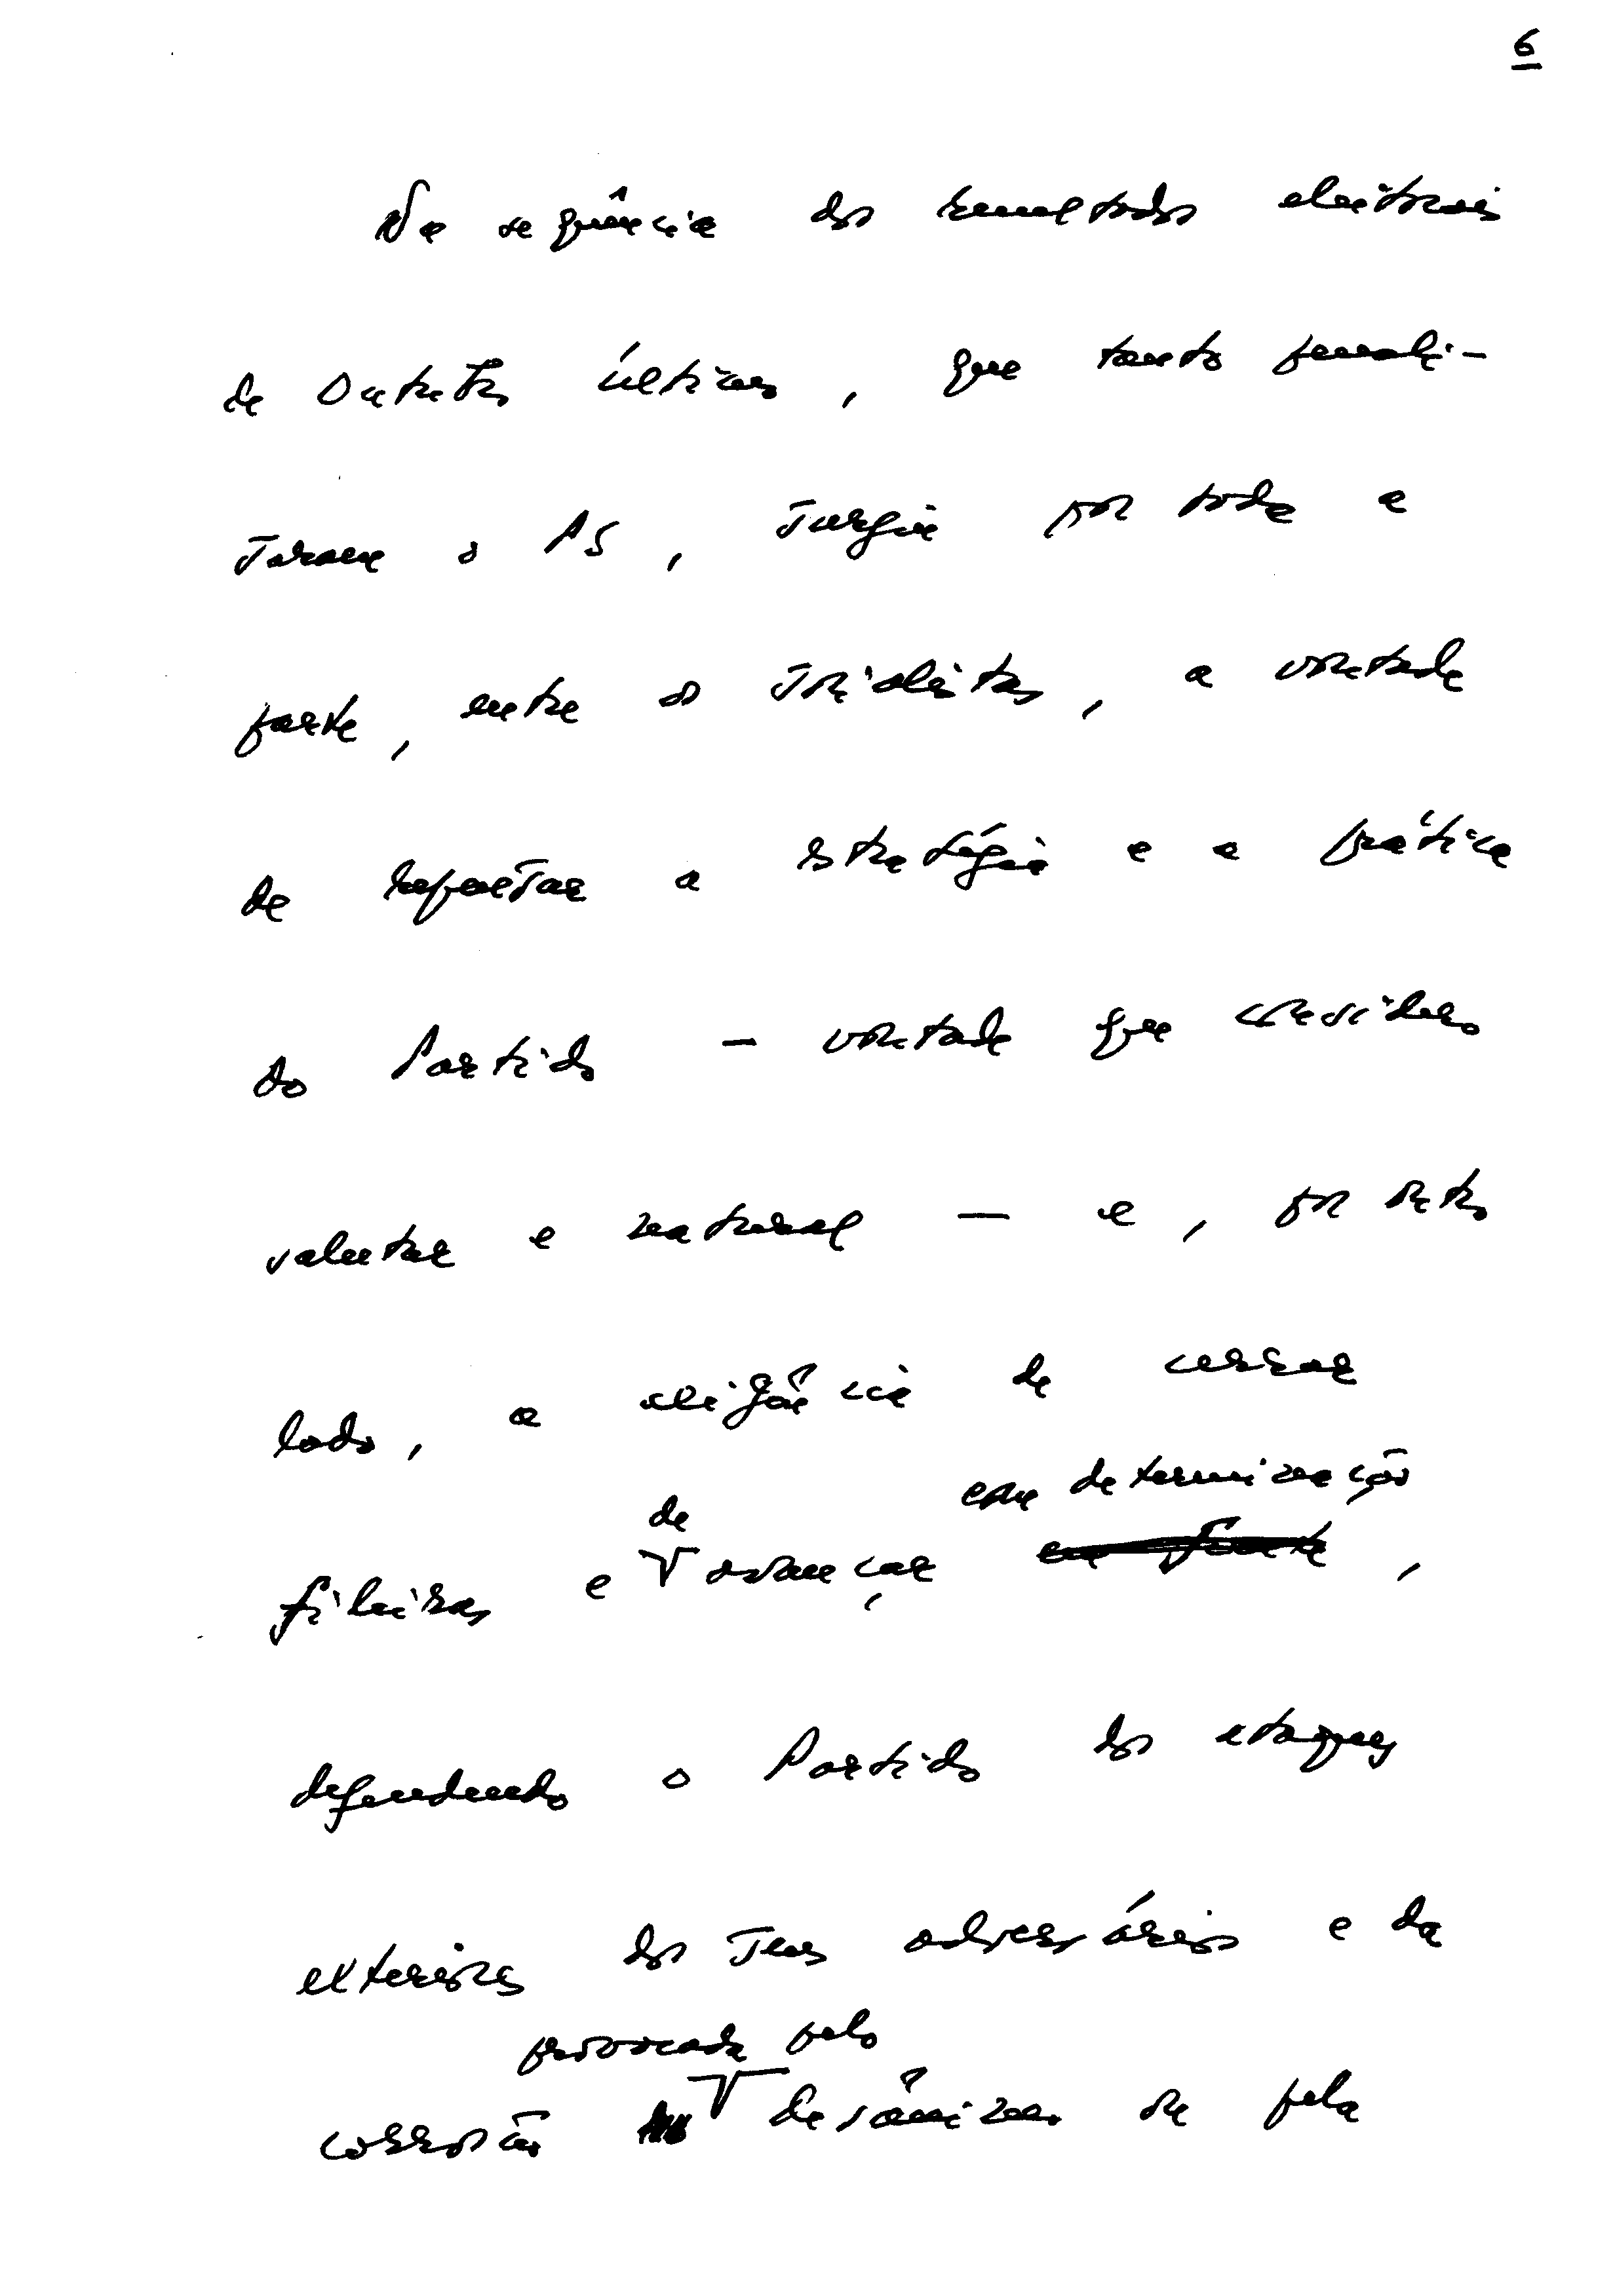 6
Na sequência dos resultados eleitorais
de Outubro último, que tanto penali-
zaram o PS, surgiu por toda a
parte, entre os socialistas, a vontade
de repensar a estratégia e a prática
do Partido - vontade que considero
salutar e natural - e, por outro
lado, a exigência de cerrar
de com determinação
fileiras e avançar em frente,
defendendo o Partido dos ataques
exteriores dos seus adversários e da
provocada pelo
corrosão desânimo ou pela